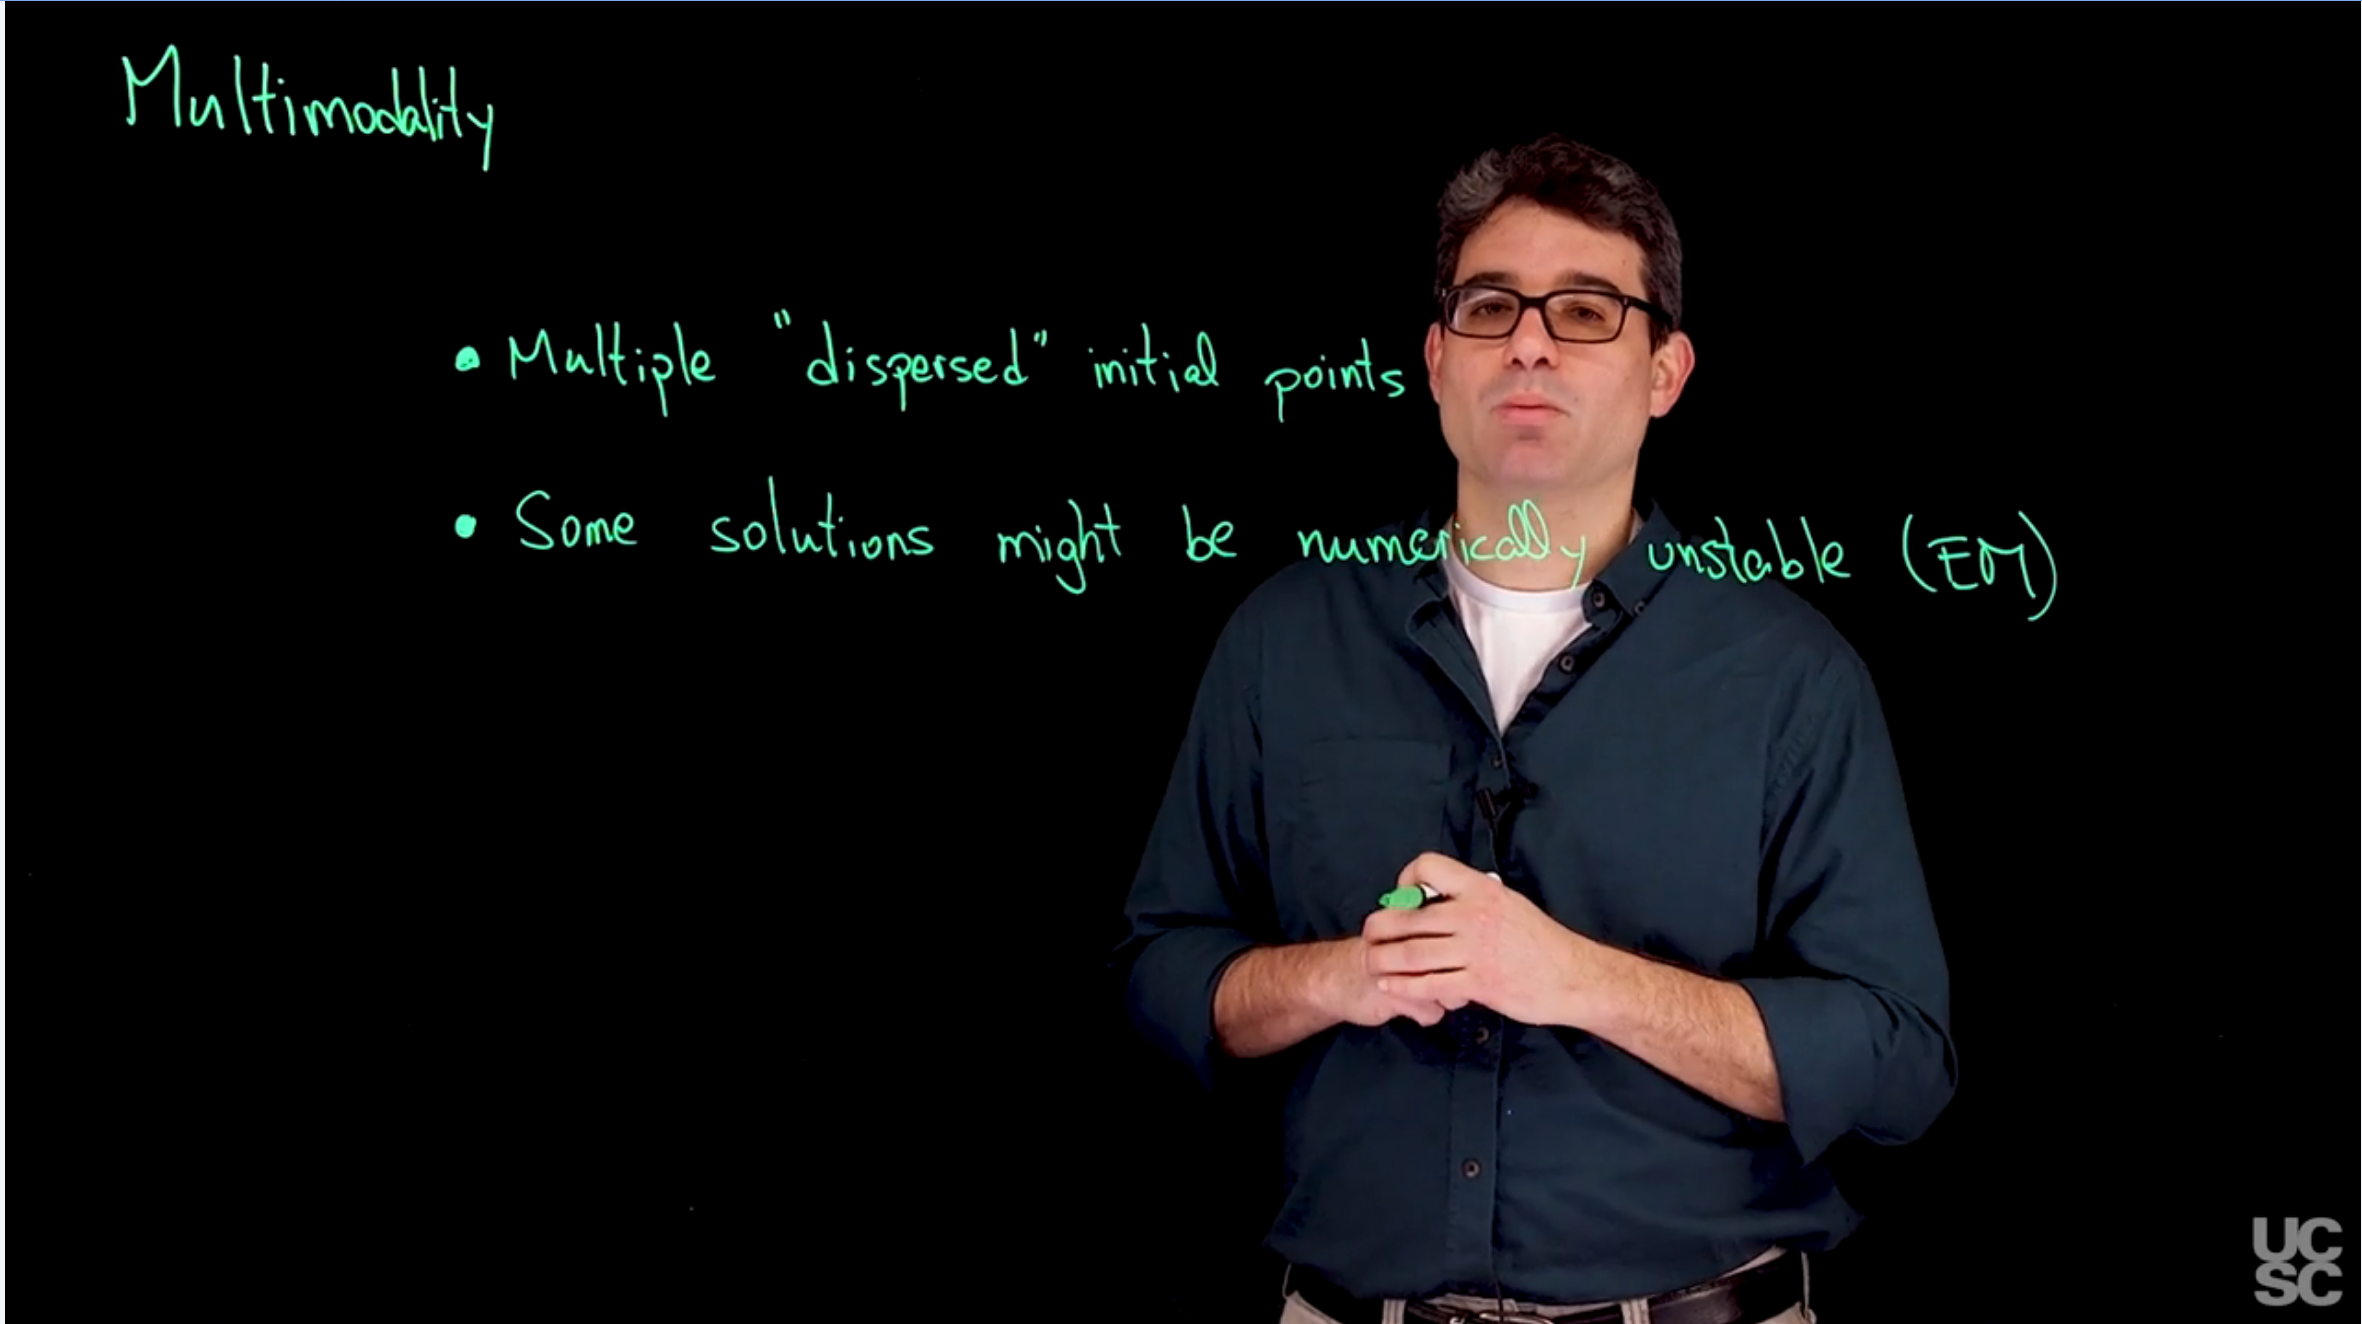 Multimodality
• Multiple "dispersed" initial points
• Some solutions might be numerically unstable (EM)
UC
SC